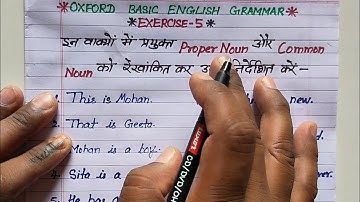 *OXFORD BASIC ENGLISH GRAMMAR*
*EXERCISE-5*
इन वाक्यों में प्रयुक्त Proper Noun और Common
Noun को रेखांकित कर निर्देशित करें-
1. This is Mohan. new.
2. That is Geeta.
3. Mohan is a boy.
4. Sita is a
5. He has a